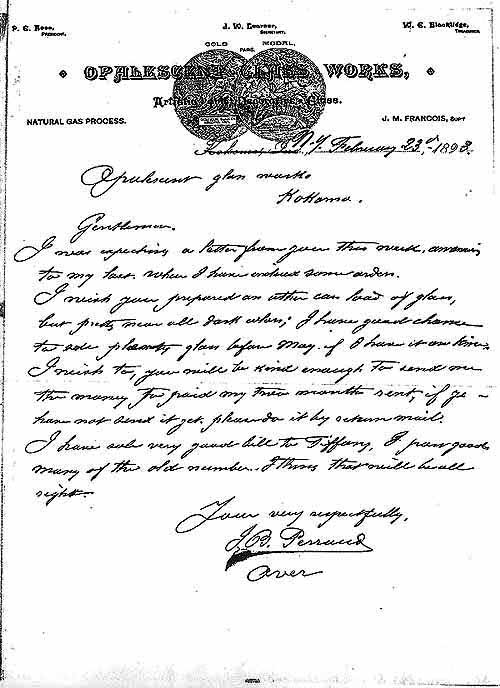 P. E. Hoss,
PRESIDENT.
J. W. Learner,
SECRETARY.
W. E. Blacklidge,
TREASURER.
GOLD MEDAL,
PARIS.
OPALESCENT GLASS WORKS,
Glass.
NATURAL GAS PROCESS.
J. M. FRANCOIS, SUPT
Kokomo, Ind., N.Y. February 23d, 1893.
Opalescent glass works
Kokomo.
Gentleman.
I was expecting a letter from you this week,
to my last. when I have ordered some orders.
I wish you prepared an other car load of glass,
but pretty near all dark colors; I have good chance
to sale plenty glass before May. if I have it on time.
I wish to, you will be kind enough to send me
the money for paid my two months rent, if yo
have not send it yet. please do it by return mail.
I have sale very good bill to Tiffany, I pass good
many of the old number. I think that will be all
right.
Your very respectfully,
J. B. Perraud
Over